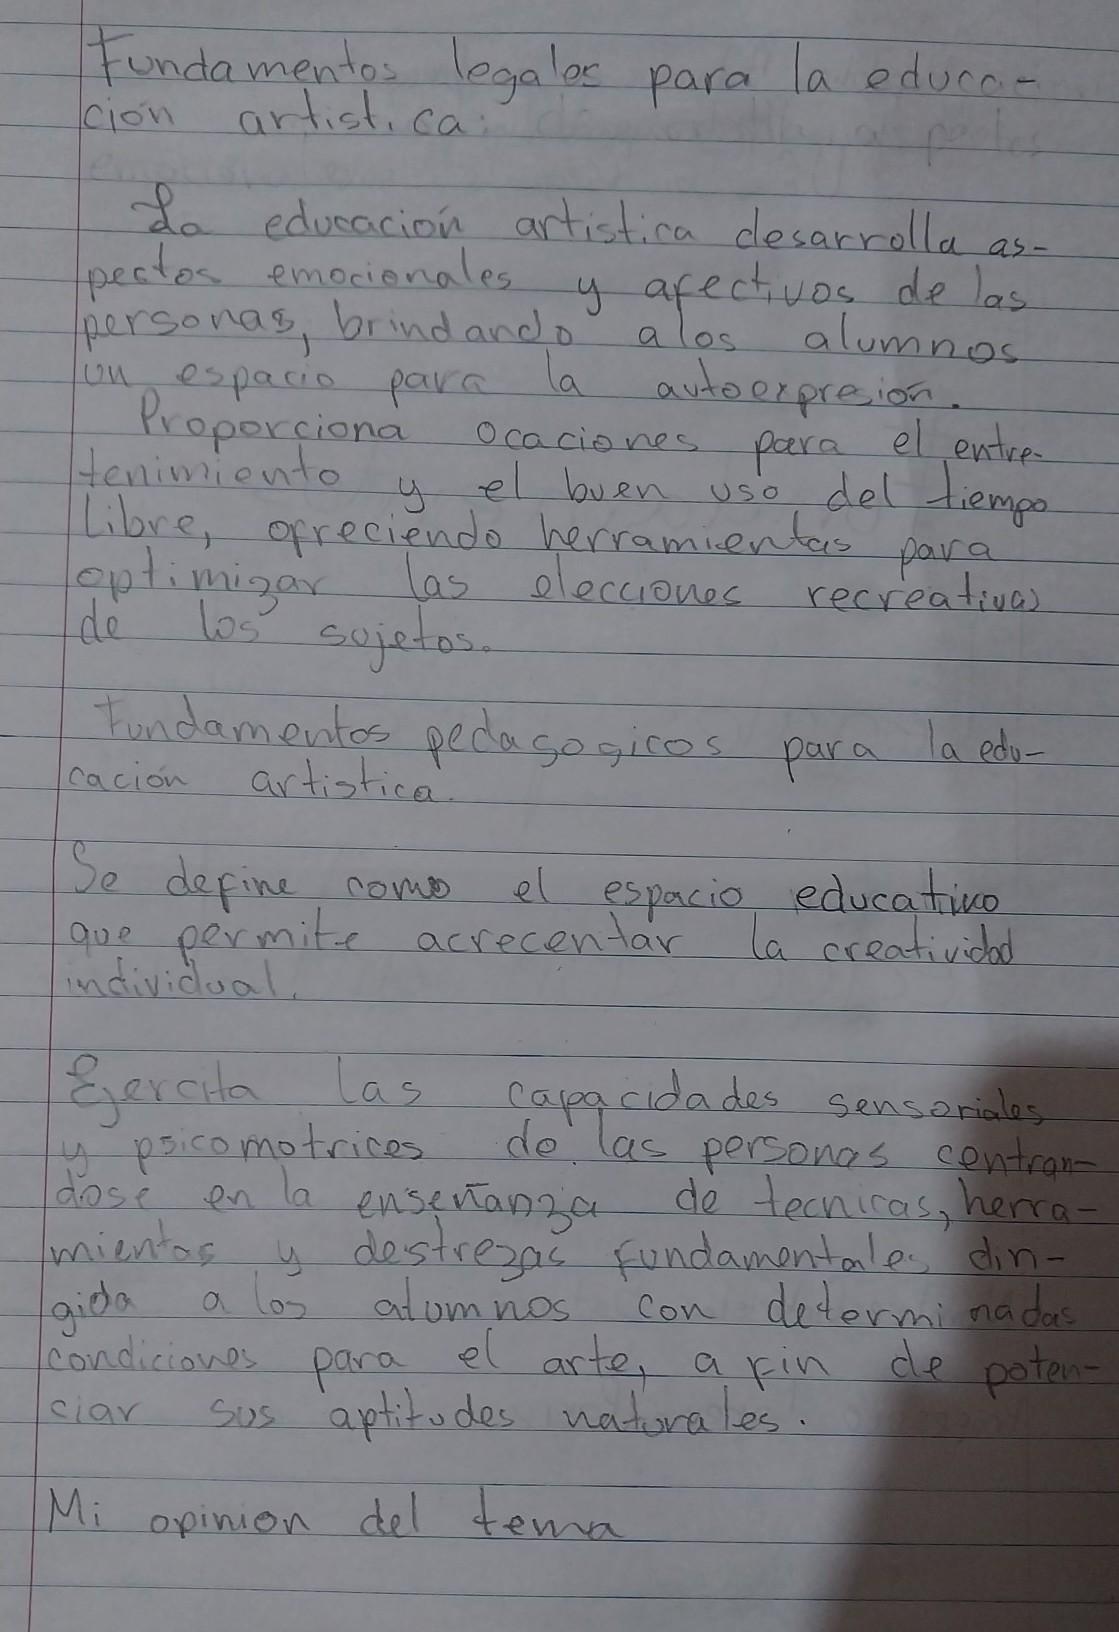 Fundamentos legales para la educa-
ción artistica:
La educación artistica desarrolla as-
pectos emocionales y afectivos de las
personas, brindando a los alumnos
un espacio para la autoexpresión.
Proporciona ocaciones para el entre-
tenimiento y el buen uso del tiempo
Libre, ofreciendo herramientas para
optimizar las elecciones recreativas
de los sujetos.
Fundamentos pedagogicos para la edu-
cación artistica.
Se define como el espacio educativo
que permite acrecentar la creatividad
individual.
Ejercita las capacidades sensoriales
y psicomotrices de las personas centran-
dose en la enseñanza de tecnicas, herra-
mientas y destrezas fundamentales diri-
gida a los alumnos con determinadas
condiciones para el arte, a fin de poten-
ciar sus aptitudes naturales.
Mi opinion del tema